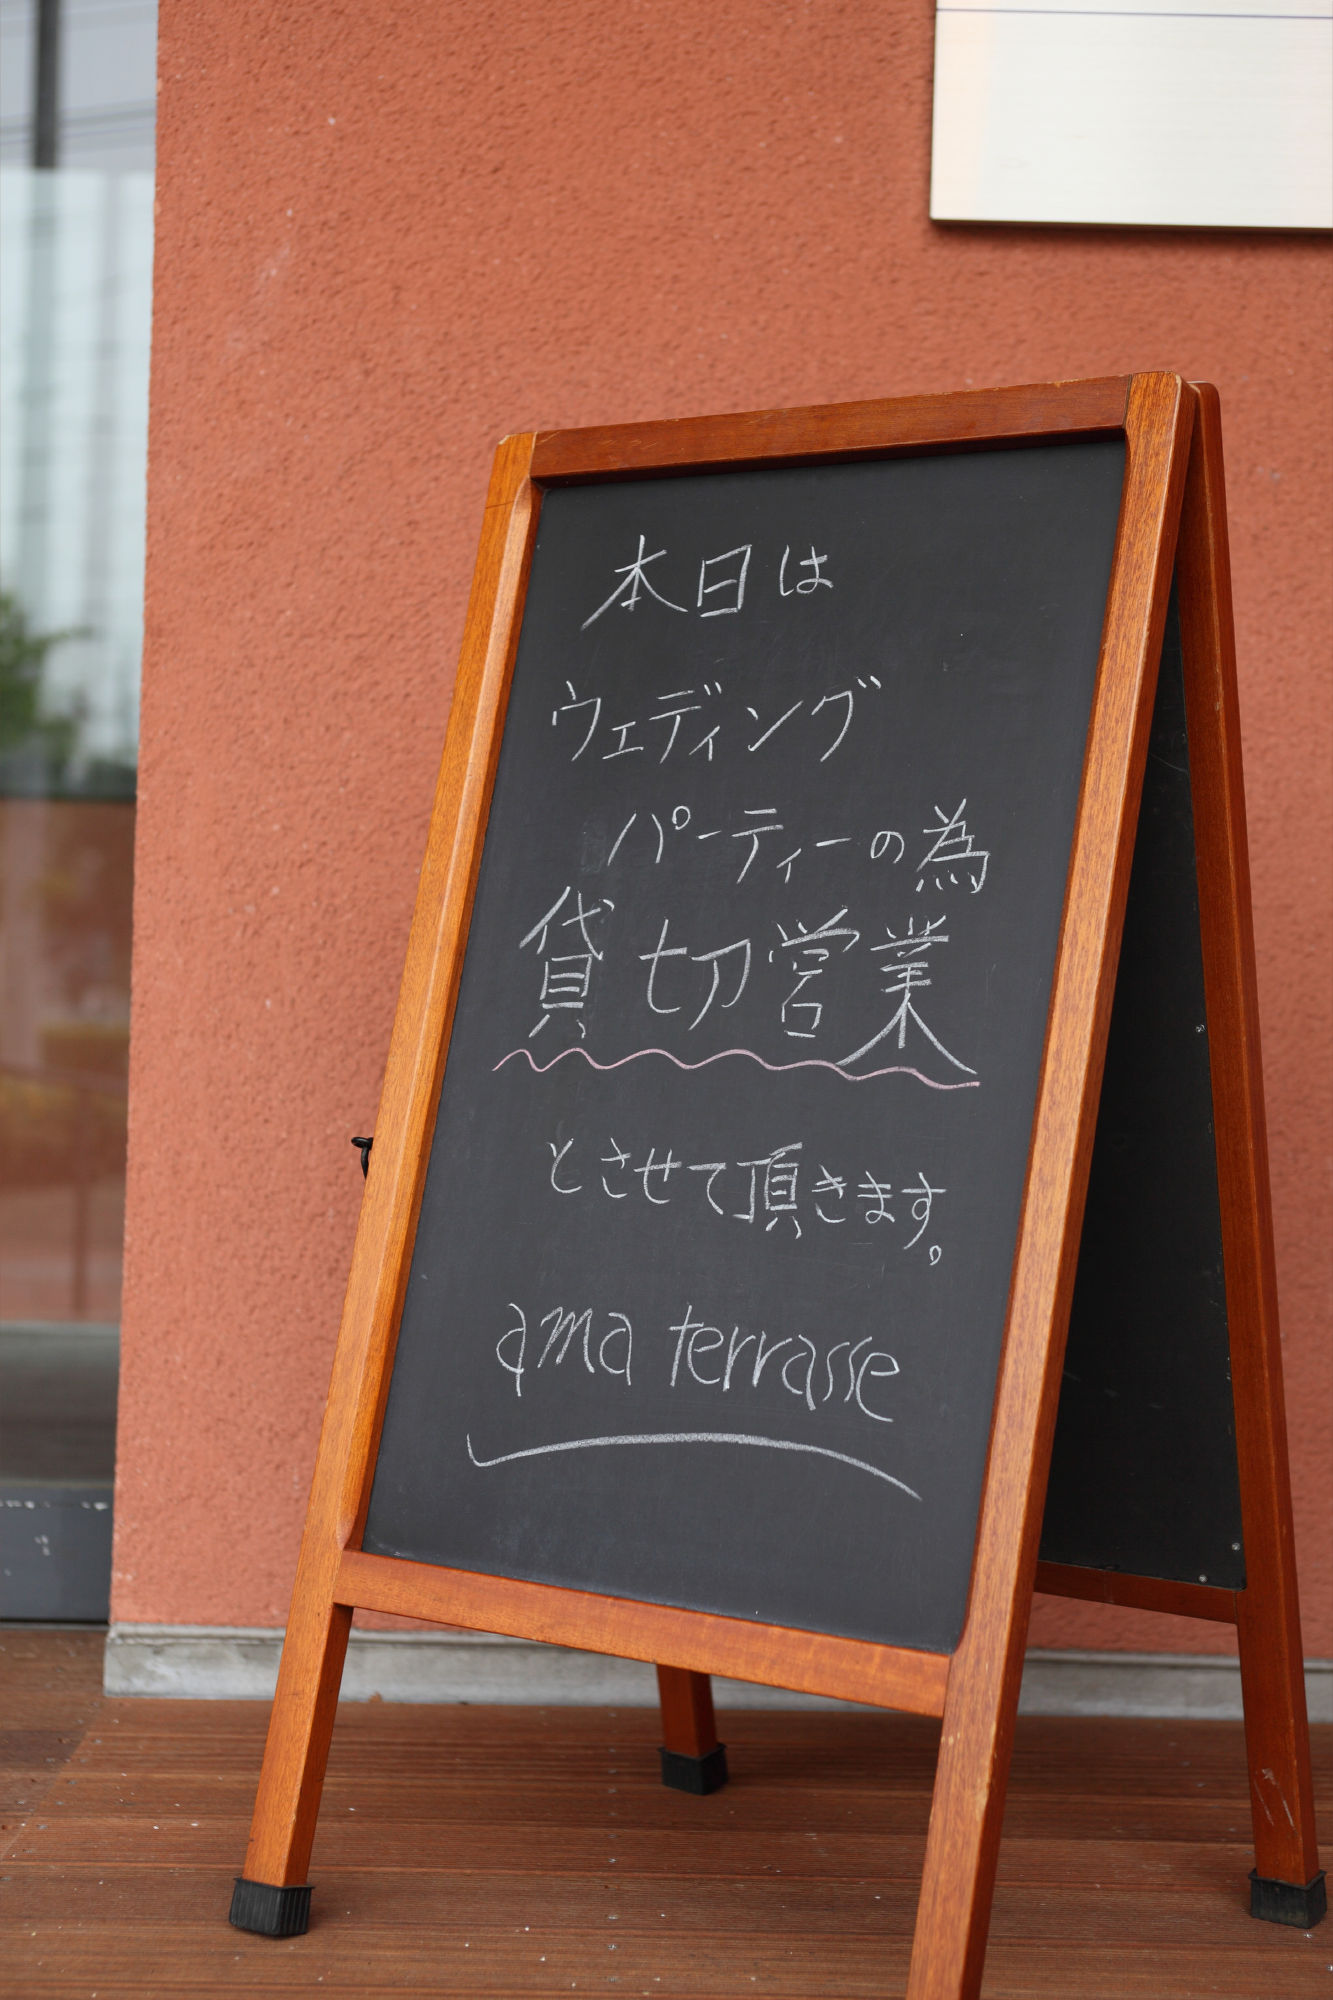 本日は
ウェディング
パーティーの為
貸切営業
とさせて頂きます。
ama terrasse